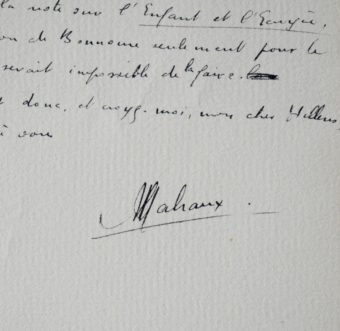 la note sur l'Enfant et l'Ecuyère,
on de Bonnome seulement pour le
serait impossible de la faire.
donc, et croyez-moi, mon cher Hellens,
à vous
Malraux.